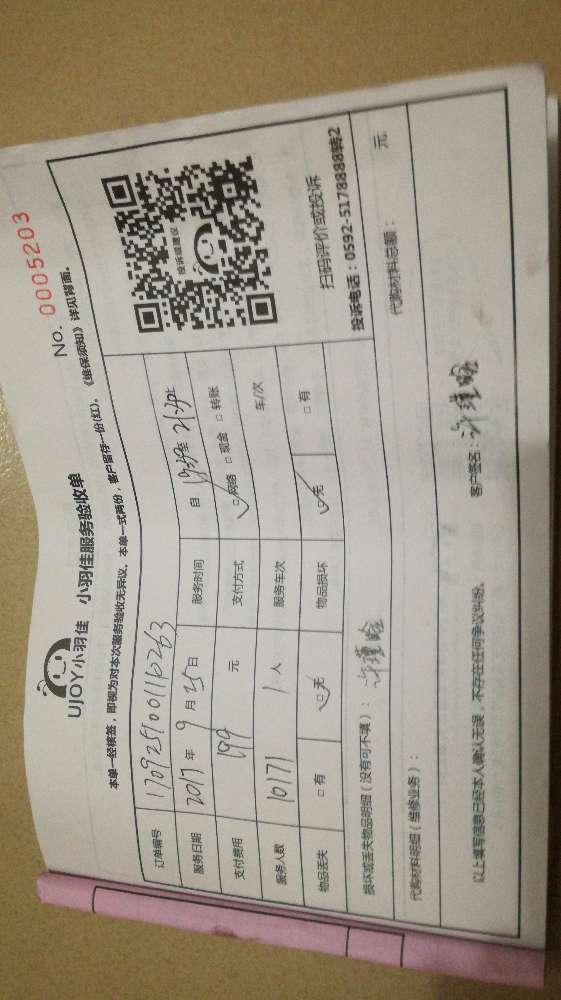 UJOY小羽佳 小羽佳服务验收单
No. 0005203
本单一经核签，即视为对本次服务验收无异议。本单一式两份，客户留存一份(红)。《维保须知》详见背面。
订单编号 170925900116263
服务日期 2017年9月25日 服务时间 自
支付费用 199 元 支付方式 网络 □现金 □转账
服务人数 10171 1人 服务车次 车/次
物品丢失 □有 □无 物品损坏 □无 □有
投诉或建议
扫码评价或投诉
投诉电话：0592-5178888转2
损坏或丢失物品明细（没有可不填）：
代购材料明细（维修业务）： 代购材料总额： 元
以上填写信息已经本人确认无误，不存在任何争议纠纷。 客户签名：